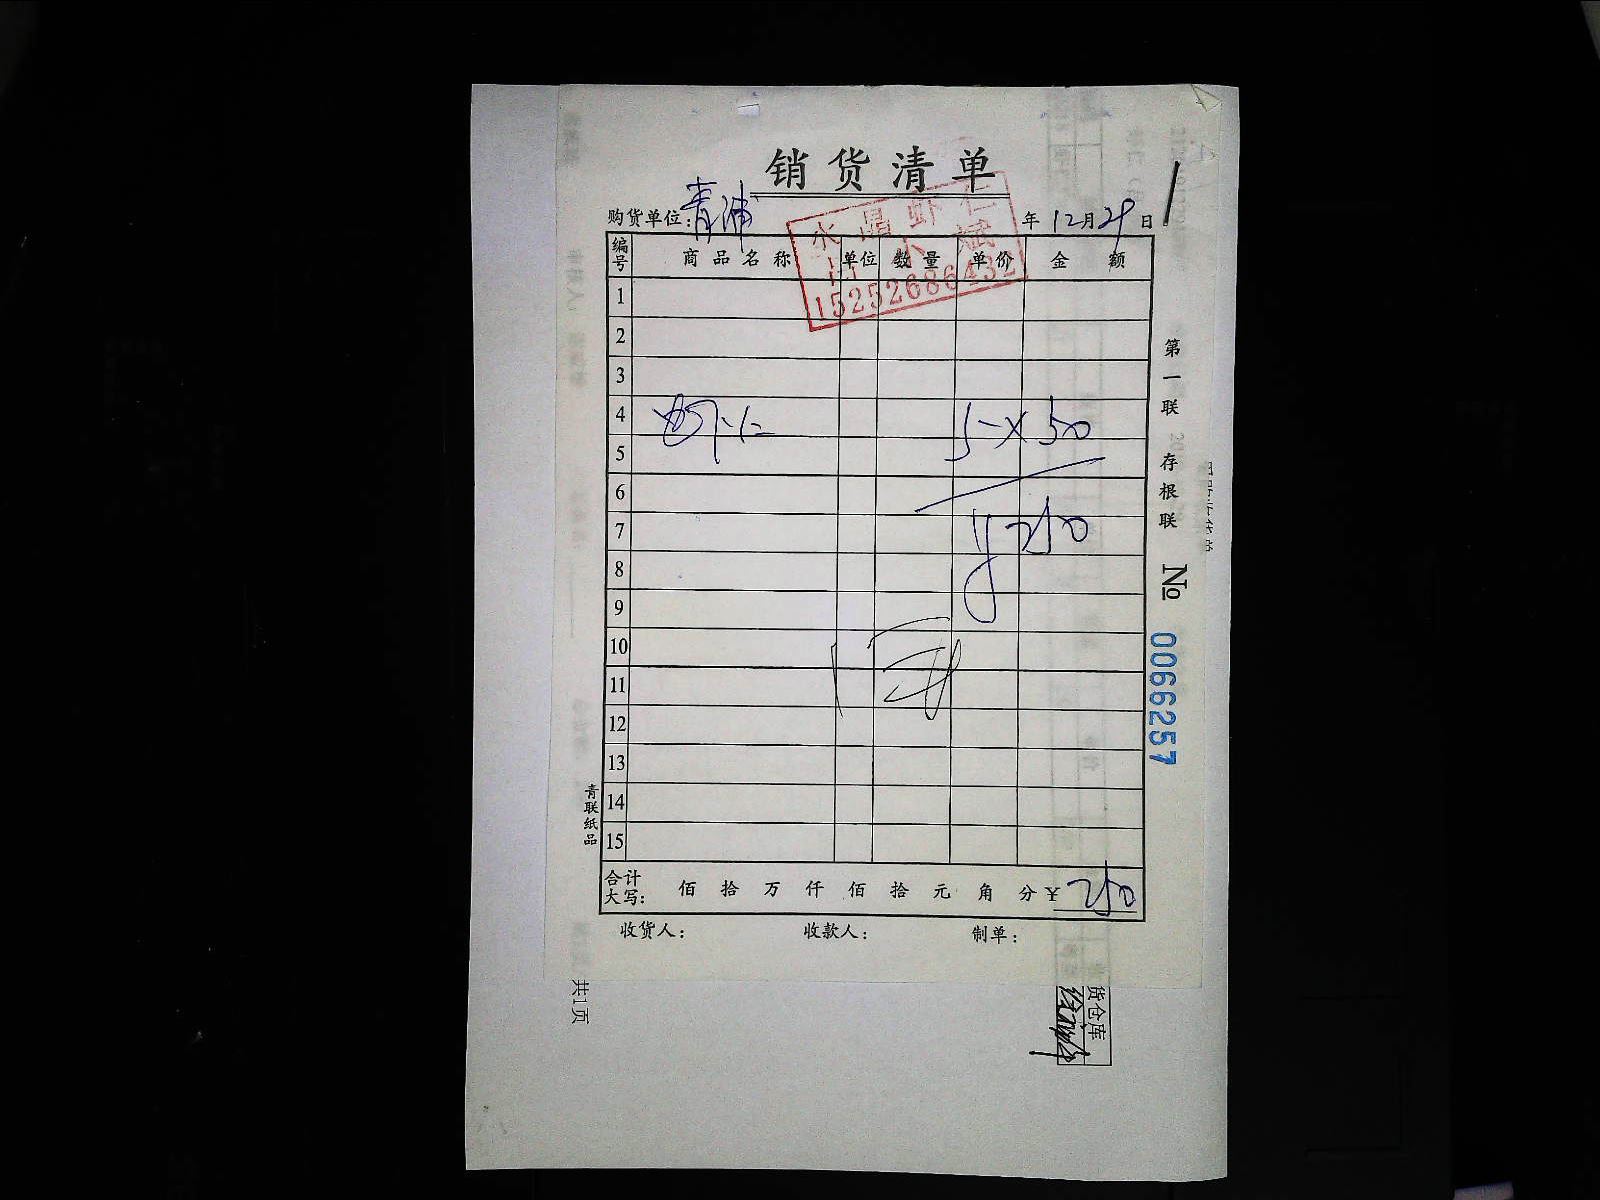 销货清单
购货单位：青浦 年12月29日
水晶虾仁
小斌
15252686432
编号 商品名称 单位 数量 单价 金额
1
2
3
4 虾仁 5-×50
5
6
7 ¥250
8
9
10
11
12
13
14
15
合计大写： 佰 拾 万 仟 佰 拾 元 角 分 ¥ 250
收货人： 收款人： 制单：
第一联 存根联
No 0066257
青联纸品
共1页
货仓库